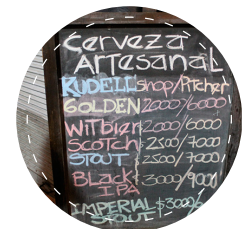 Cerveza
ARTESANAL
RUDELL shop/Pitcher
GOLDEN 2000/6000
WitbieR $2000/6000
SCOTCH $2500/7000
STOUT $2500/7000
BLACK $3000/9000
IPA
IMPERIAL $3000/
STOUT